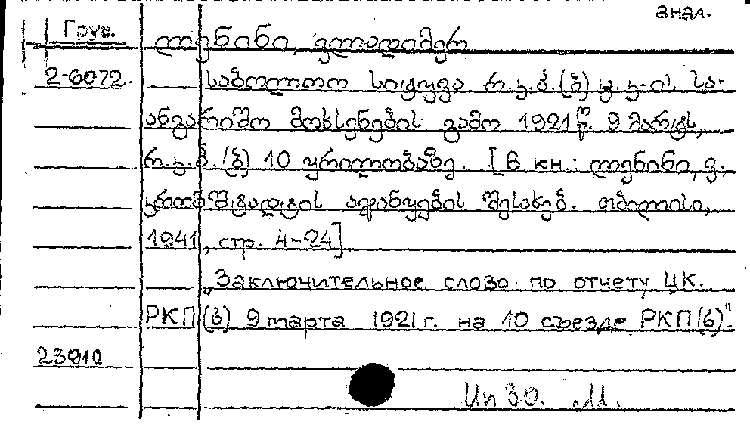 анал.
Груз.
ლენინი, ვლადიმერ
2-6072. საბოლოო სიტყვა რ.კ.პ.(ბ) ც.კ-ის სა-
ანგარიშო მოხსენების გამო 1921 წ. 9 მარტს,
რ.კ.პ.(ბ) 10 ყრილობაზე. [В кн.: ლენინი, ვ.
შესახებ. თბილისი,
1941, стр. 4-24].
„Заключительное слово по отчету ЦК.
РКП(б) 9 марта 1921 г. на 10 съезде РКП(б)".
23910
Ип 30. М.